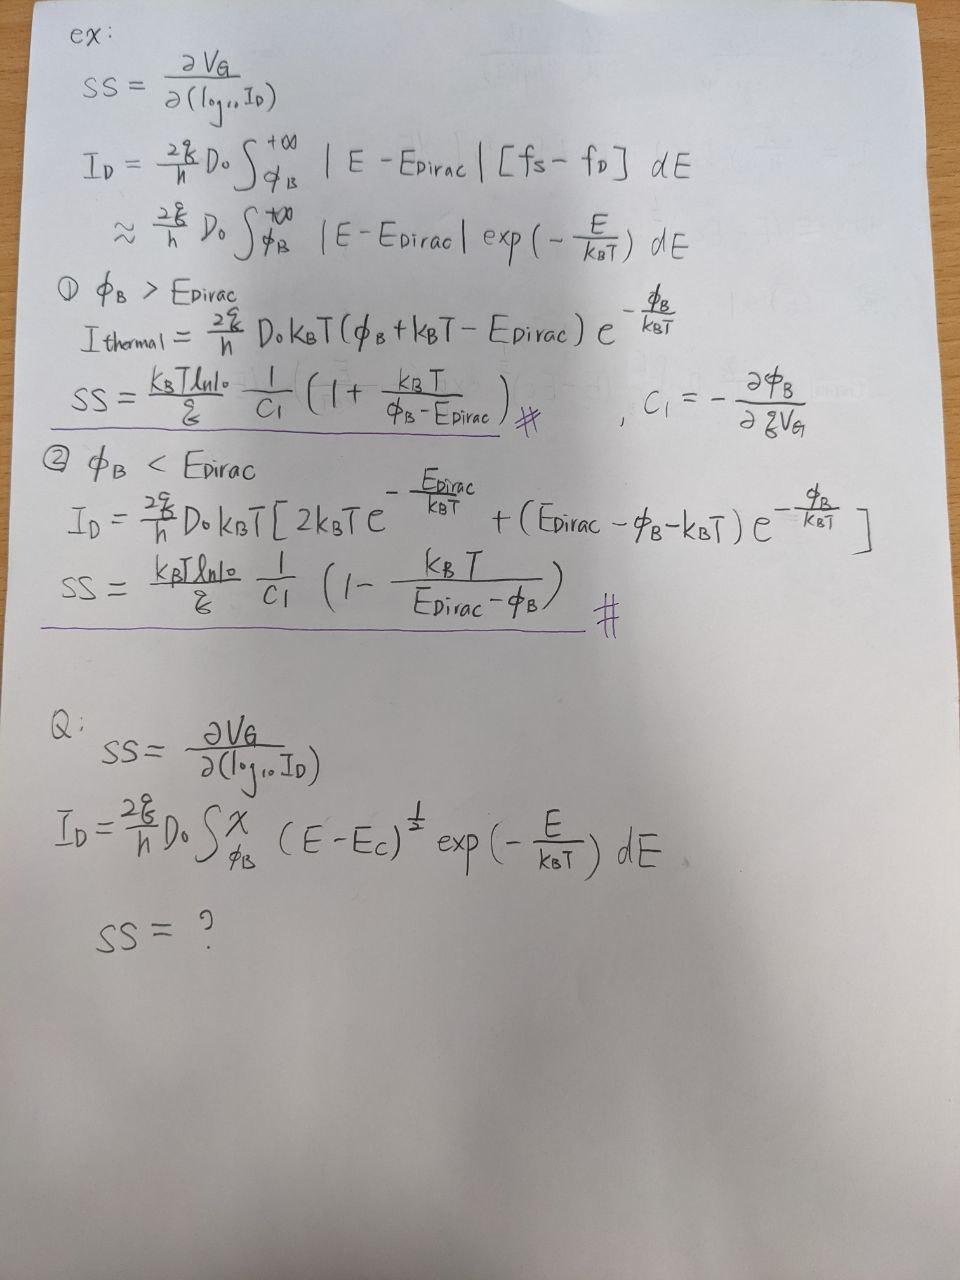 ex:
SS = ∂V_G / ∂(log₁₀ I_D)
I_D = 2q/h D₀ ∫_{ϕ_B}^{+∞} |E - E_Dirac| [f_S - f_D] dE
≈ 2q/h D₀ ∫_{ϕ_B}^{+∞} |E - E_Dirac| exp(-E/k_BT) dE
① ϕ_B > E_Dirac
I_thermal = 2q/h D₀ k_BT (ϕ_B + k_BT - E_Dirac) e^{-ϕ_B/k_BT}
SS = k_BT ln10 / q 1/C₁ (1 + k_BT / (ϕ_B - E_Dirac)) # , C₁ = - ∂ϕ_B / ∂qV_G
② ϕ_B < E_Dirac
I_D = 2q/h D₀ k_BT [2k_BT e^{-E_Dirac/k_BT} + (E_Dirac - ϕ_B - k_BT) e^{-ϕ_B/k_BT}]
SS = k_BT ln10 / q 1/C₁ (1 - k_BT / (E_Dirac - ϕ_B)) #
Q:
SS = ∂V_G / ∂(log₁₀ I_D)
I_D = 2q/h D₀ ∫_{ϕ_B}^{χ} (E - E_C)^{1/2} exp(-E/k_BT) dE
SS = ?